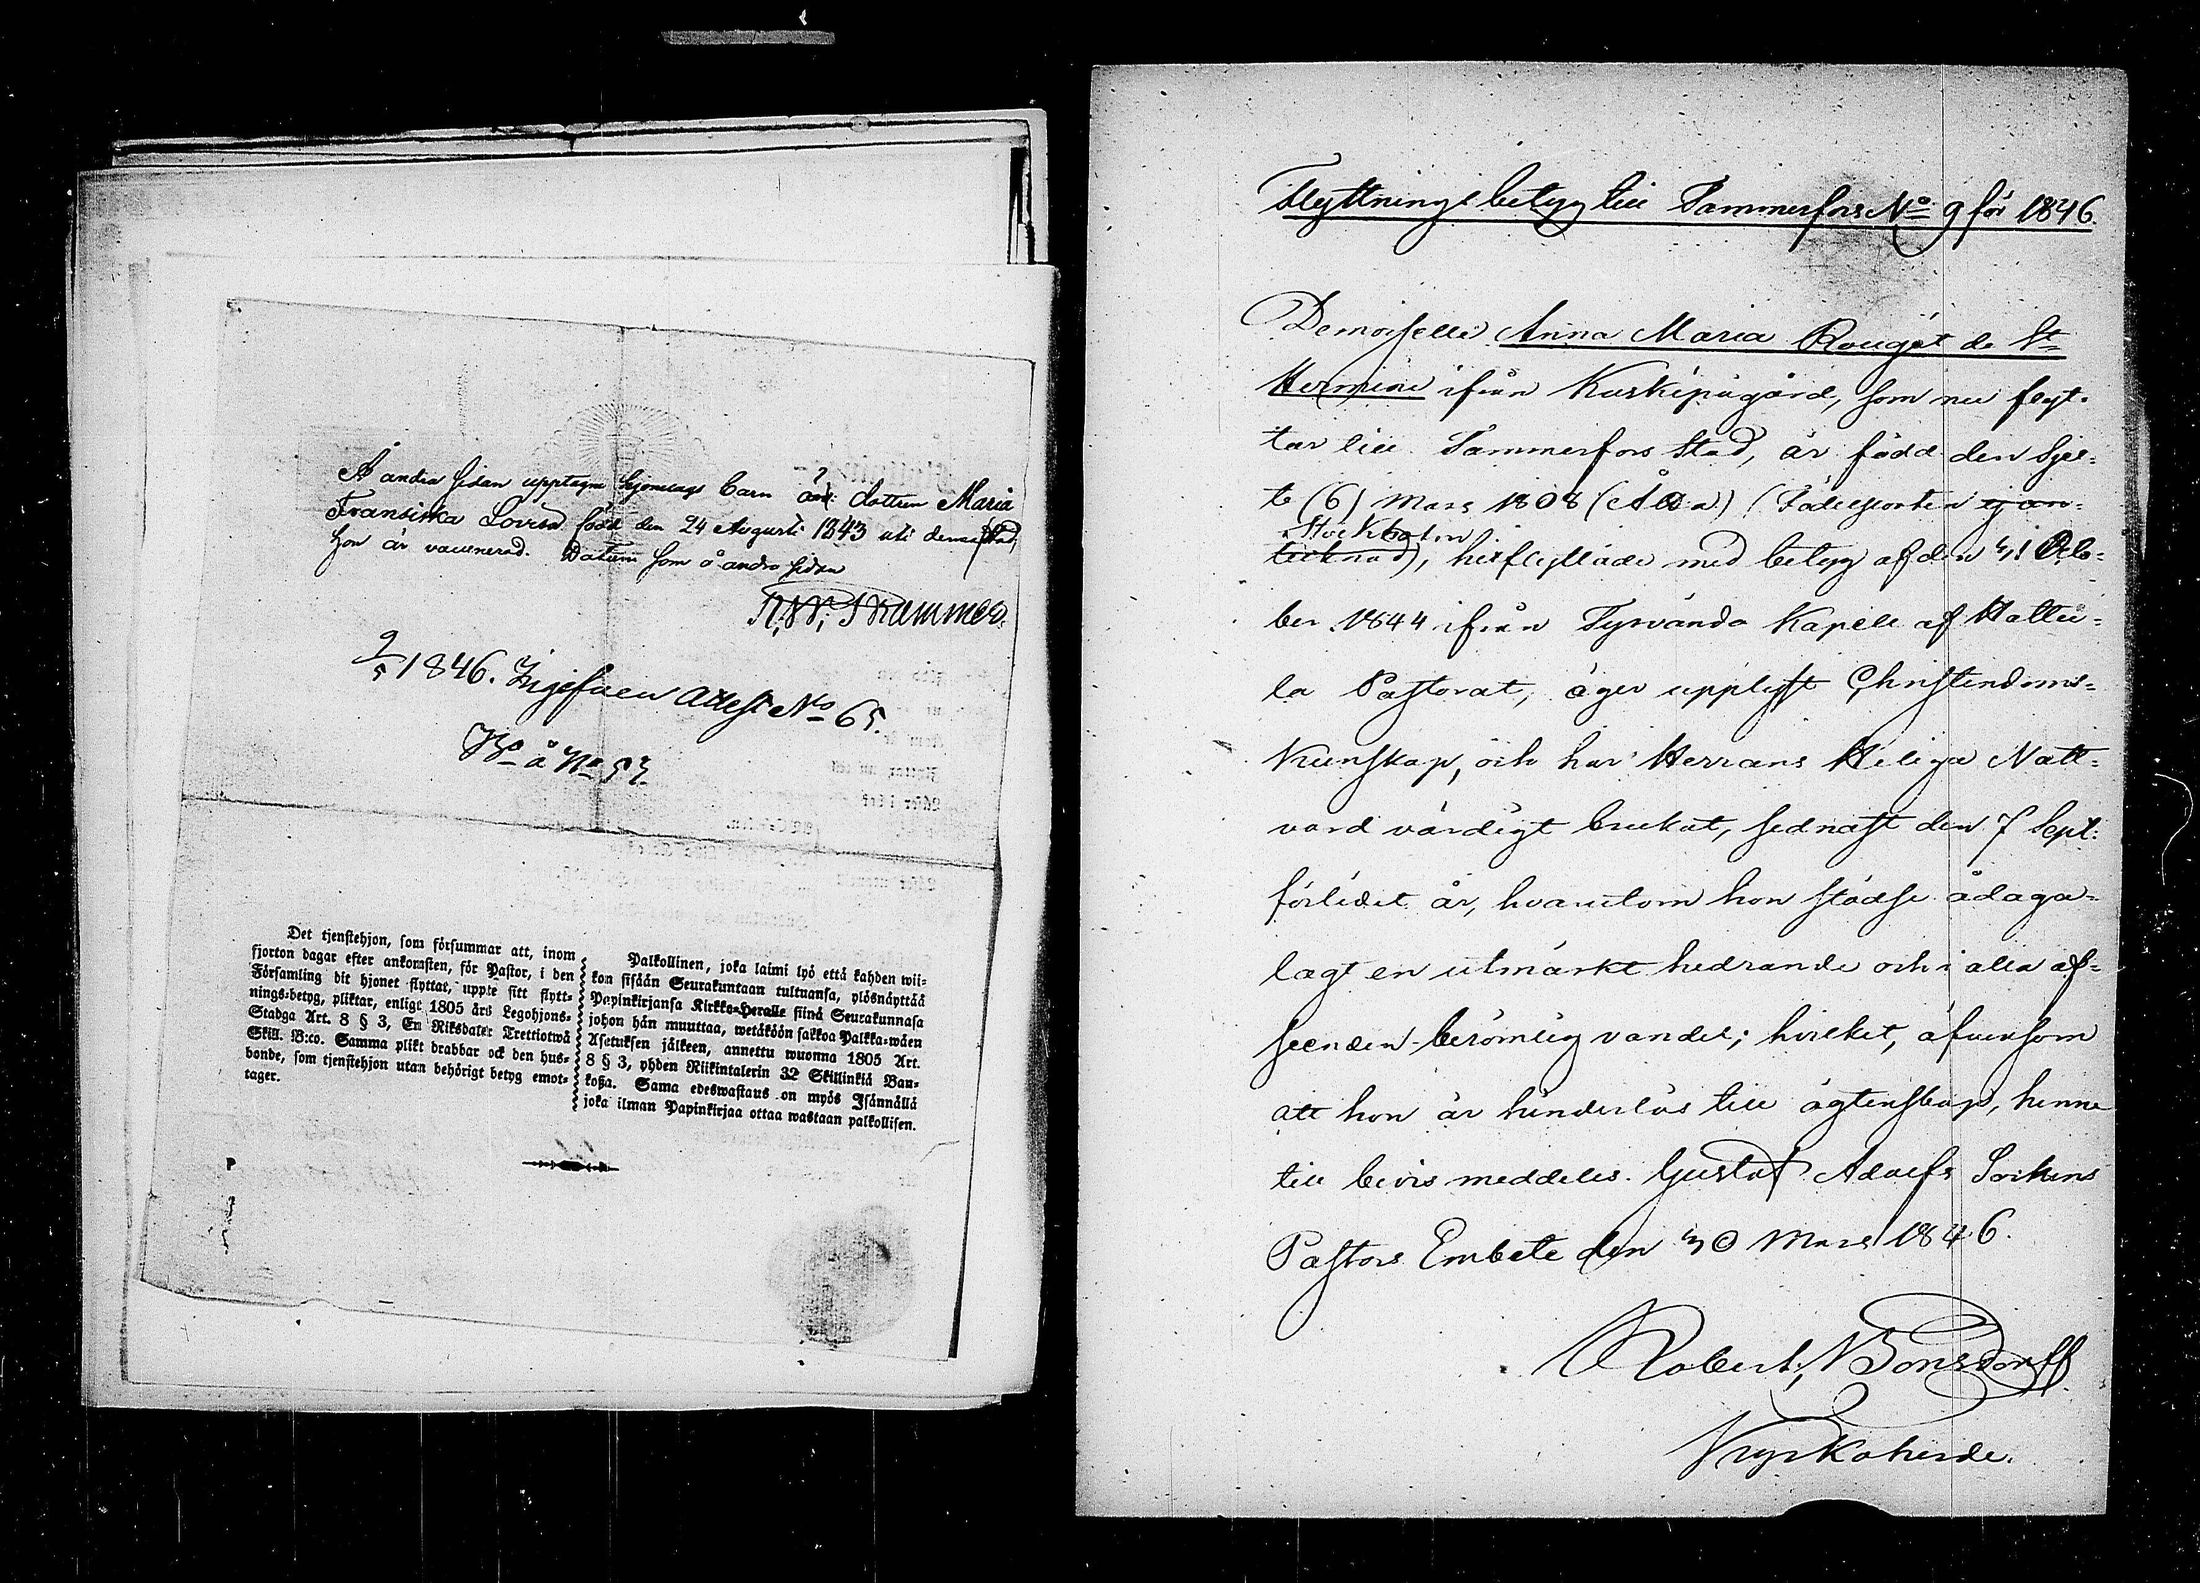 Å andra sidan upptagne hjonelags barn är: dottren Maria
Fransiska Lovisa född den 24 Augusti 1843 uti denna Stad,
hon är vaccinerad. Datum som å andra sidan
9/5 1846. Attest No 65.
å No 53.
Det tjenstehjon, som försummar att, inom
fjorton dagar efter ankomsten, för Pastor, i den
Församling dit hjonet flyttat, uppte sitt flytt-
nings-betyg, pliktar, enligt 1805 års Legohjons-
Stadga Art. 8 § 3, En Riksdaler Trettiotwå
Skill. B:co. Samma plikt drabbar ock den hus-
bonde, som tjenstehjon utan behörigt betyg emot-
tager.
Palkollinen, joka laimi lyö että kahden wii-
kon sisään Seurakuntaan tultuansa, ylösnäyttää
Papinkirjansa Kirkko-Herralle siinä Seurakunnasa
johon hän muuttaa, wetäköön sakkoa Palkka-wäen
Asetuksen jälkeen, annettu wuonna 1805 Art.
8 § 3, yhden Riikintalerin 32 Skillinkiä Ban-
koßa. Sama edeswastaus on myös Isännällä
joka ilman Papinkirjaa ottaa wastaan palkollisen.
Flyttningsbetyg till Tammerfors No 9 för 1846.
Demoiselle Anna Maria Rouget de St
Hermine ifrån Kurkipägård, som nu flyt-
tar till Tammerfors Stad, är född den sjet-
te (6) Mars 1808 (Åtta) (Födelseorten ej an-
Stockholm
tecknad), hitflyttade med betyg af den 31 Octo-
ber 1844 ifrån Tyrvändö Kapell af Hattu-
la Pastorat, äger upplyst Christendoms-
kunskap, och har Herrans Heliga Natt-
vard värdigt brukat, sednast den 7 Sept.
förlidet år, hvarutom hon städse ådaga-
lagt en utmärkt hedrande och i alla af-
seenden berömlig vandel; hvilket, äfvensom
att hon är hinderlös till ägtenskap, henne
till bevis meddeles. Gustaf Adolfs Sockens
Pastors Embete den 30 Mars 1846.
Robert V Bonsdorff.
Kyrkoherde.